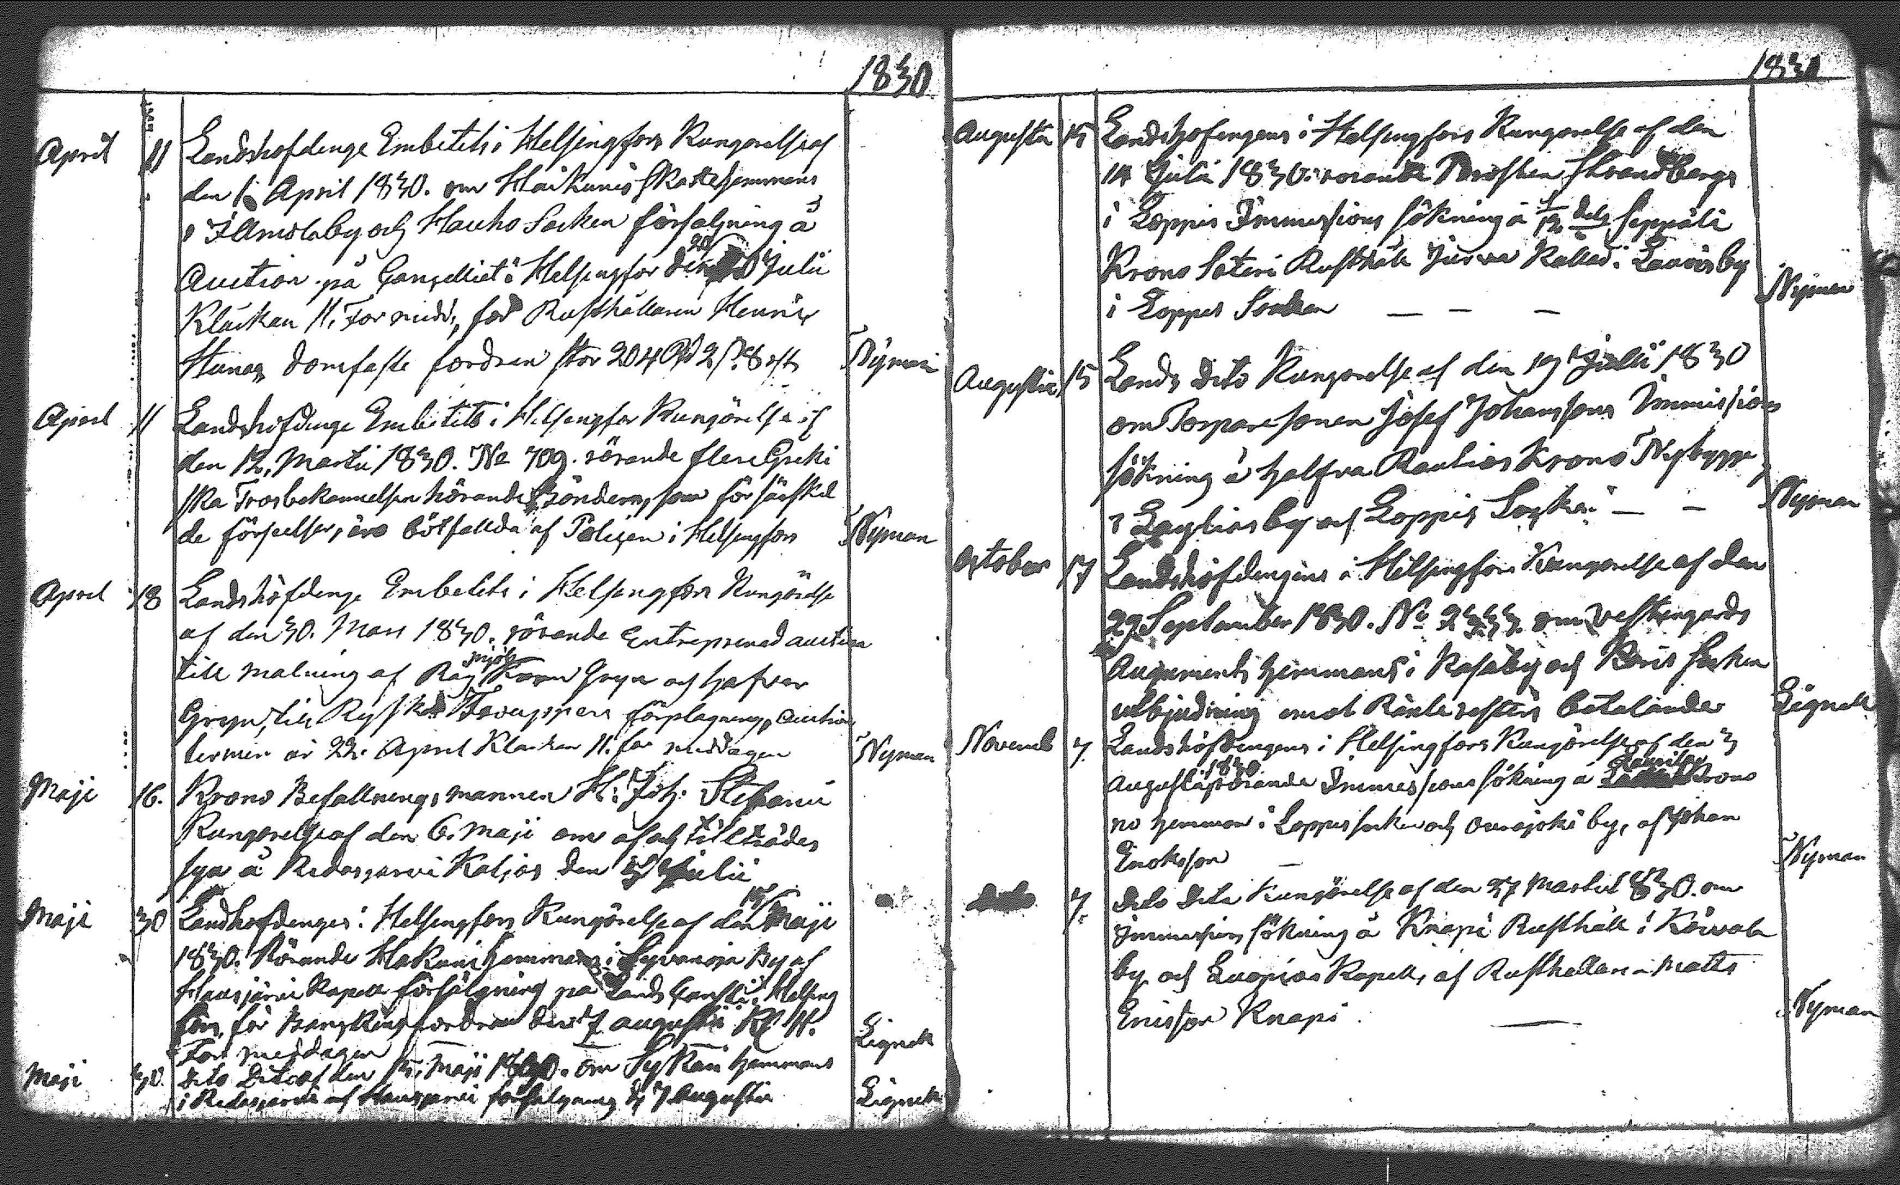 1830
April 11 Landshöfdinge Embetets i Helsingfors Kungörelse af
den 6 April 1830. om Haikunis skattehemmans
i Ilamolaby och Hauho Socken försäljning å
Auction på Canselliet i Helsingfor den 20 Julii
Klåckan 11. For midd, for Rusthållaren Henric
Hunas domfaste fordran stor 204 Rd 2 s. 8 rst Nyman
April 11 Landshöfdinge Embetets i Helsingfor Kungörelse af
den 12, Martii 1830. No 709. rörande flere Greki
ska Trosbekannelsen hörande som för särskil
de förseelser, äro bötfällda af Polisen i Helsingfors Nyman
April 18 Landshöfdinge Embetets i Helsingfors Kungörelse
af den 30. Mars 1830. rörande Entreprenad auction
till malning af Råg mjöl Korn Gryn och hafver
Gryn, till Ryska Trouppers förplägning, Auctions
termin är 22. April Klackan 11. for middagen Nyman
Maji 16. Krono Befallningsmannen H: Joh: Stefanii
Kungorelse af den 6. Maji om af och tillträdes
syn å Ridasjervi Kaljas den Julii
Maji 30 Landshofdinges i Helsingfors Kungörelse af den Maji
1830. Rörande Hakuni Hemmans i By af
Hausjärvi Kapell försäljning på Lands Cansli i Helsing
fors, för fordran den 7 augusti Kl 11.
For middagen Lignell
Maji 30. Dito Dito af den 15. Maji 1830. om hemmans
i Ridasjärvi af Hausjärvi forsalgning d 7 Augusti Lignell
1830
Augusti 15 Landshöfdingens i Helsingfors Kungorelse af den
14 Julii 1830. rorande Prosten Strandbergs
i Loppis Immissions sökning å 1/12 dels Seppälä
Krono Säteri Rusthåll Jurva Kallad i Lauisby
i Loppis Socken — — — Nyman
Augusti 15 Lands dito Kungorelse af den 19 Julii 1830
om Torparesonen Josef Johanssons Immissions
sökning å halfva Rautias Krono Nybygge
i Laylias by och Loppis Socken — — Nyman
October 17 Landshöfdingens i Helsingfors Kungorelse af den
29 September 1830. No 2333. om Vestengards
Augements hemmans i Rasaby och Socken
utbjudning emot Ränterestens betalande Lignell
Novemb 7. Landshöfdingens i Helsingfors Kungörelse af den 3
Augusti 1830 rörande Immissions sökning å Laurila Krono
no hemman i Loppis socken och Ourajoki by, af Johan
Ericksson — Nyman
dito 7. Dito Dito Kungörelse af den 27 Martii 1830. om
Immissions sökning å Knapi Rusthåll i
by och Luopios Kapell, af Rusthållaren Matts
Ericsson Knapi — Nyman